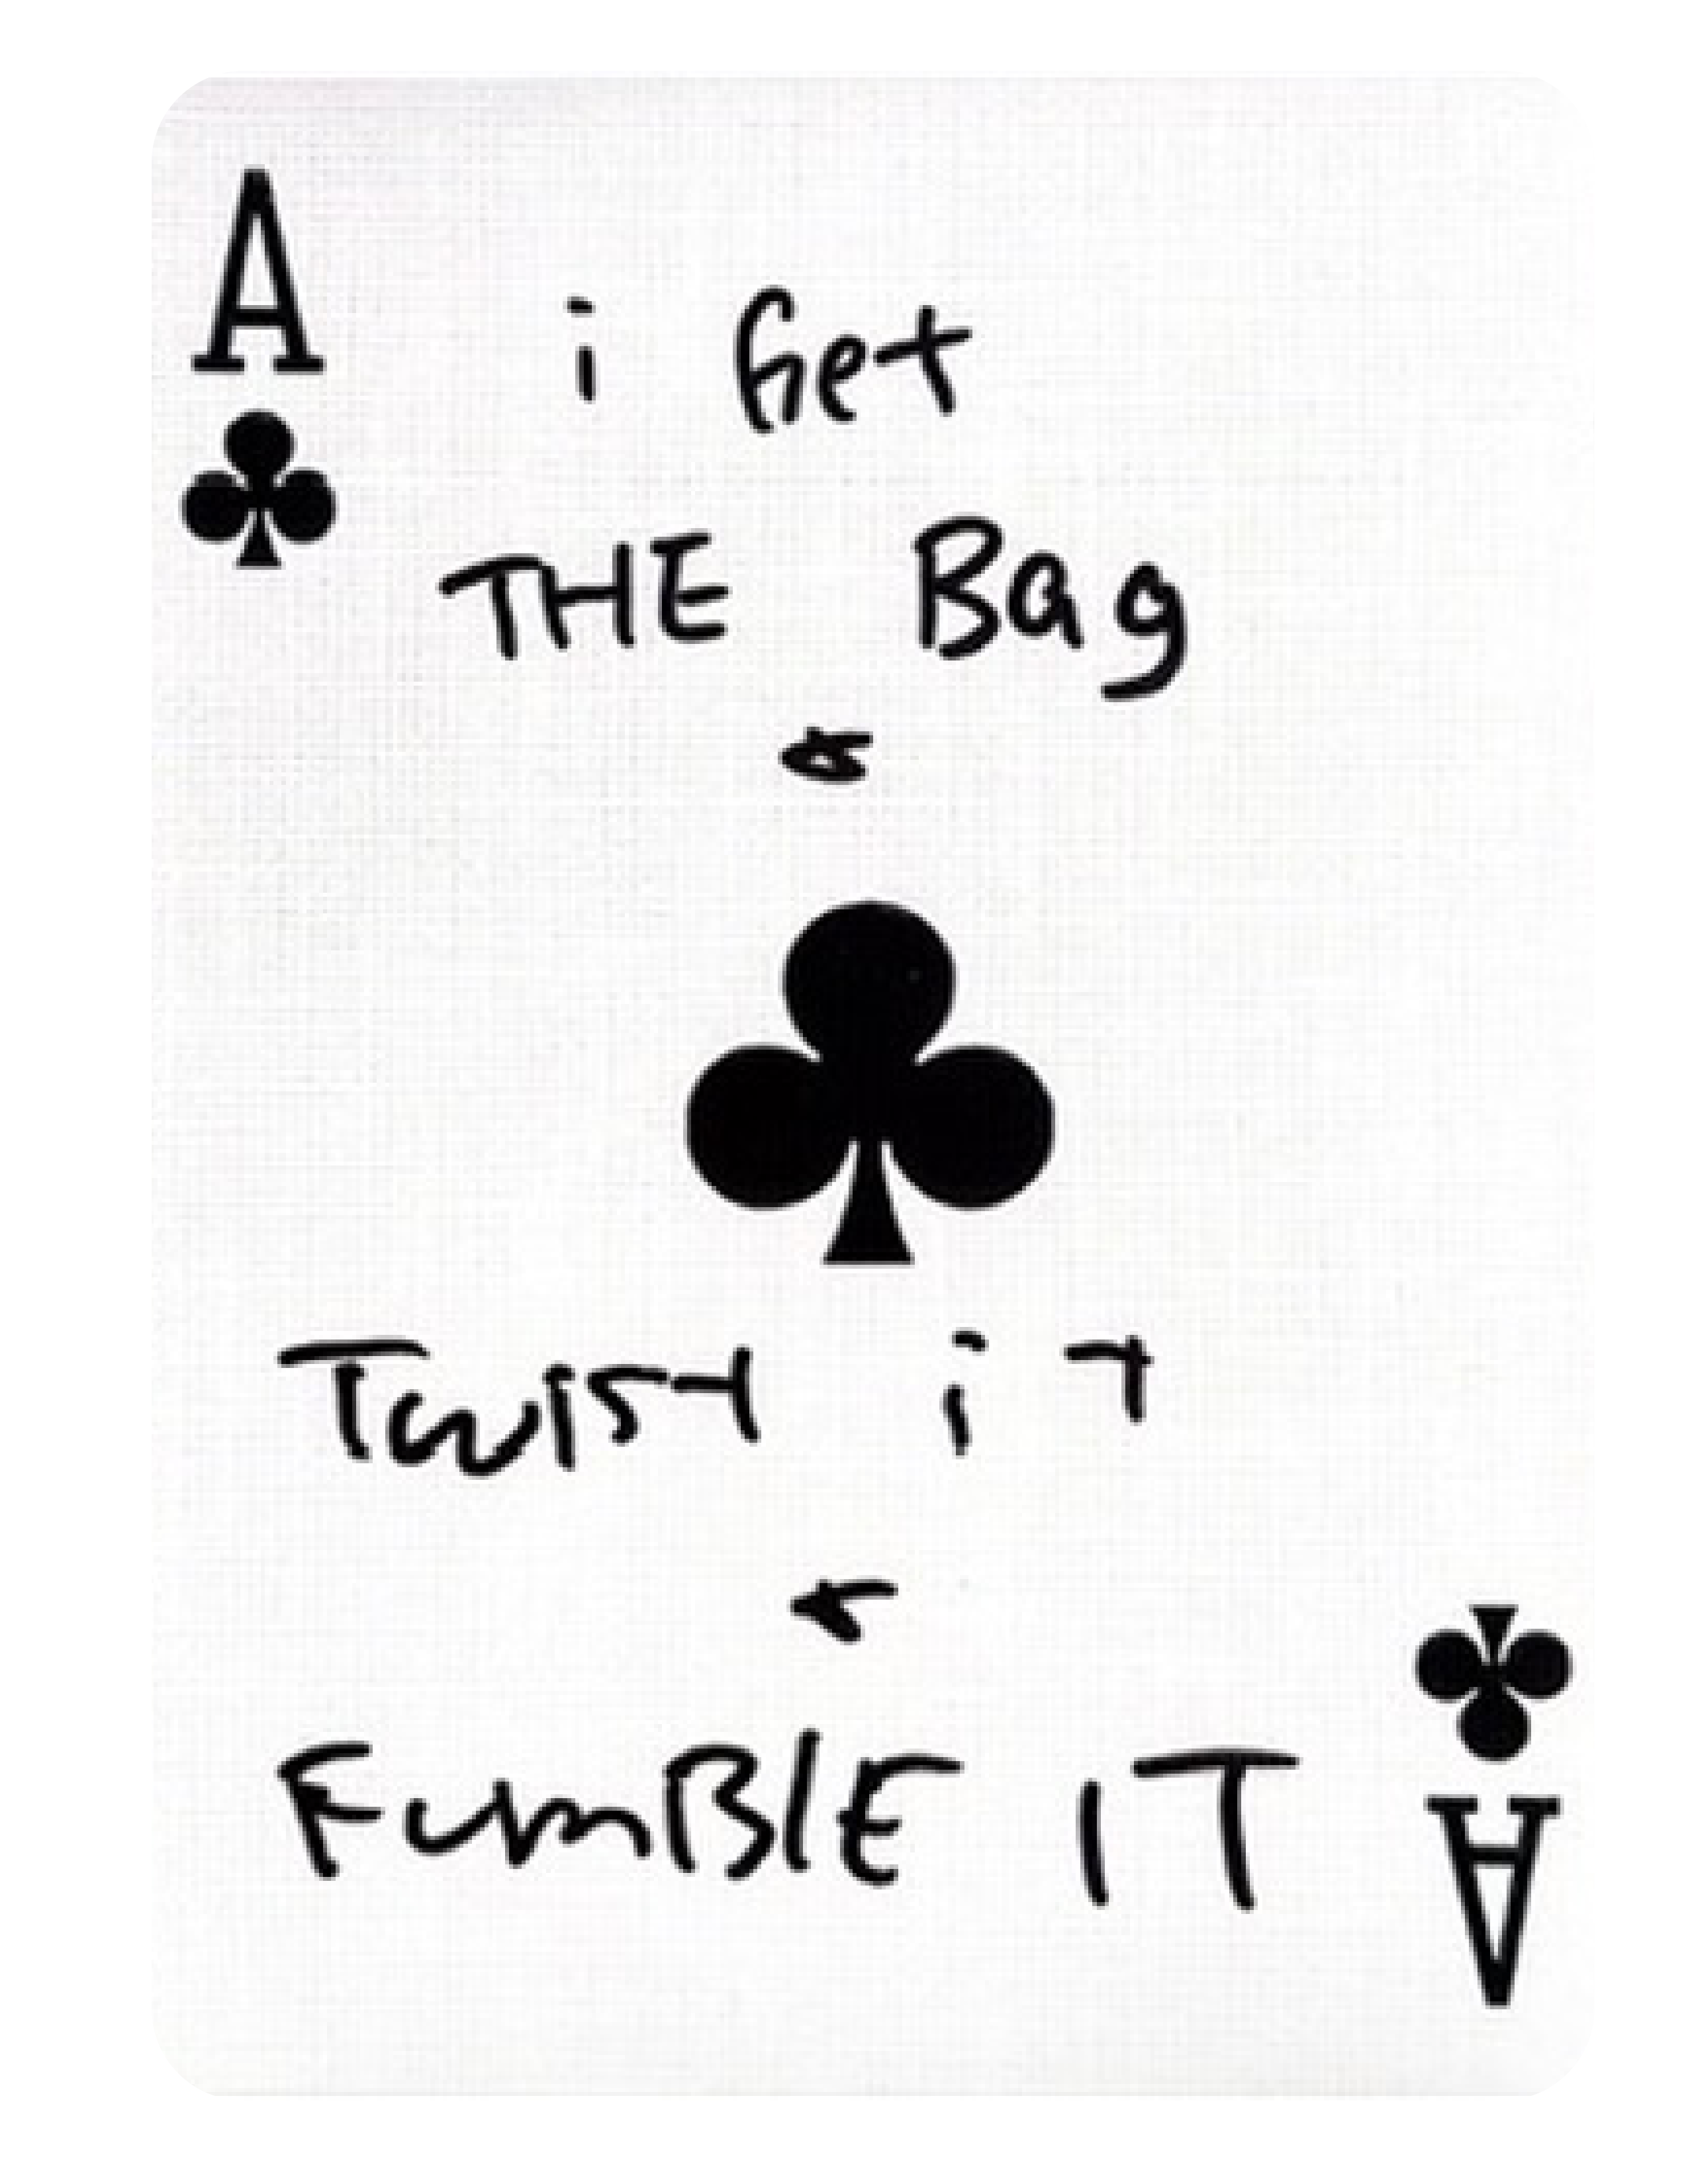 A
i Get
THE Bag
&
Twist iT
&
FumBlE IT
A